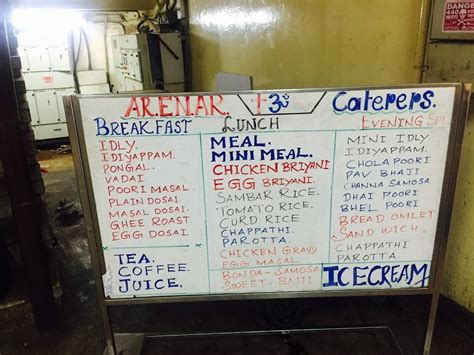 ARENAR
Caterers.
BREAKFAST
IDLY.
IDIYAPPAM.
PONGAL.
VADAI.
POORI MASAL
PLAIN DOSAI.
MASAL DOSAI
GHEE ROAST.
EGG DOSAI.
TEA.
COFFEE.
JUICE.
LUNCH
MEAL.
MINI MEAL.
CHICKEN BRIYANI
EGG BRIYANI.
SAMBAR RICE.
TOMATO RICE.
CURD RICE
CHAPPATHI.
PAROTTA.
CHICKEN GRAVY
EGG MASAL
BONDA - SAMOSA
SWEET. BAJJI
EVENING SPL
MINI IDLY
IDIYAPPAM.
CHOLA POORI
PAV BHAJI
CHANNA SAMOSA
DHAI POORI
BHEL POORI
BREAD OMLET
SAND WICH.
CHAPPATHI
PAROTTA.
ICECREAM
DANGER
440